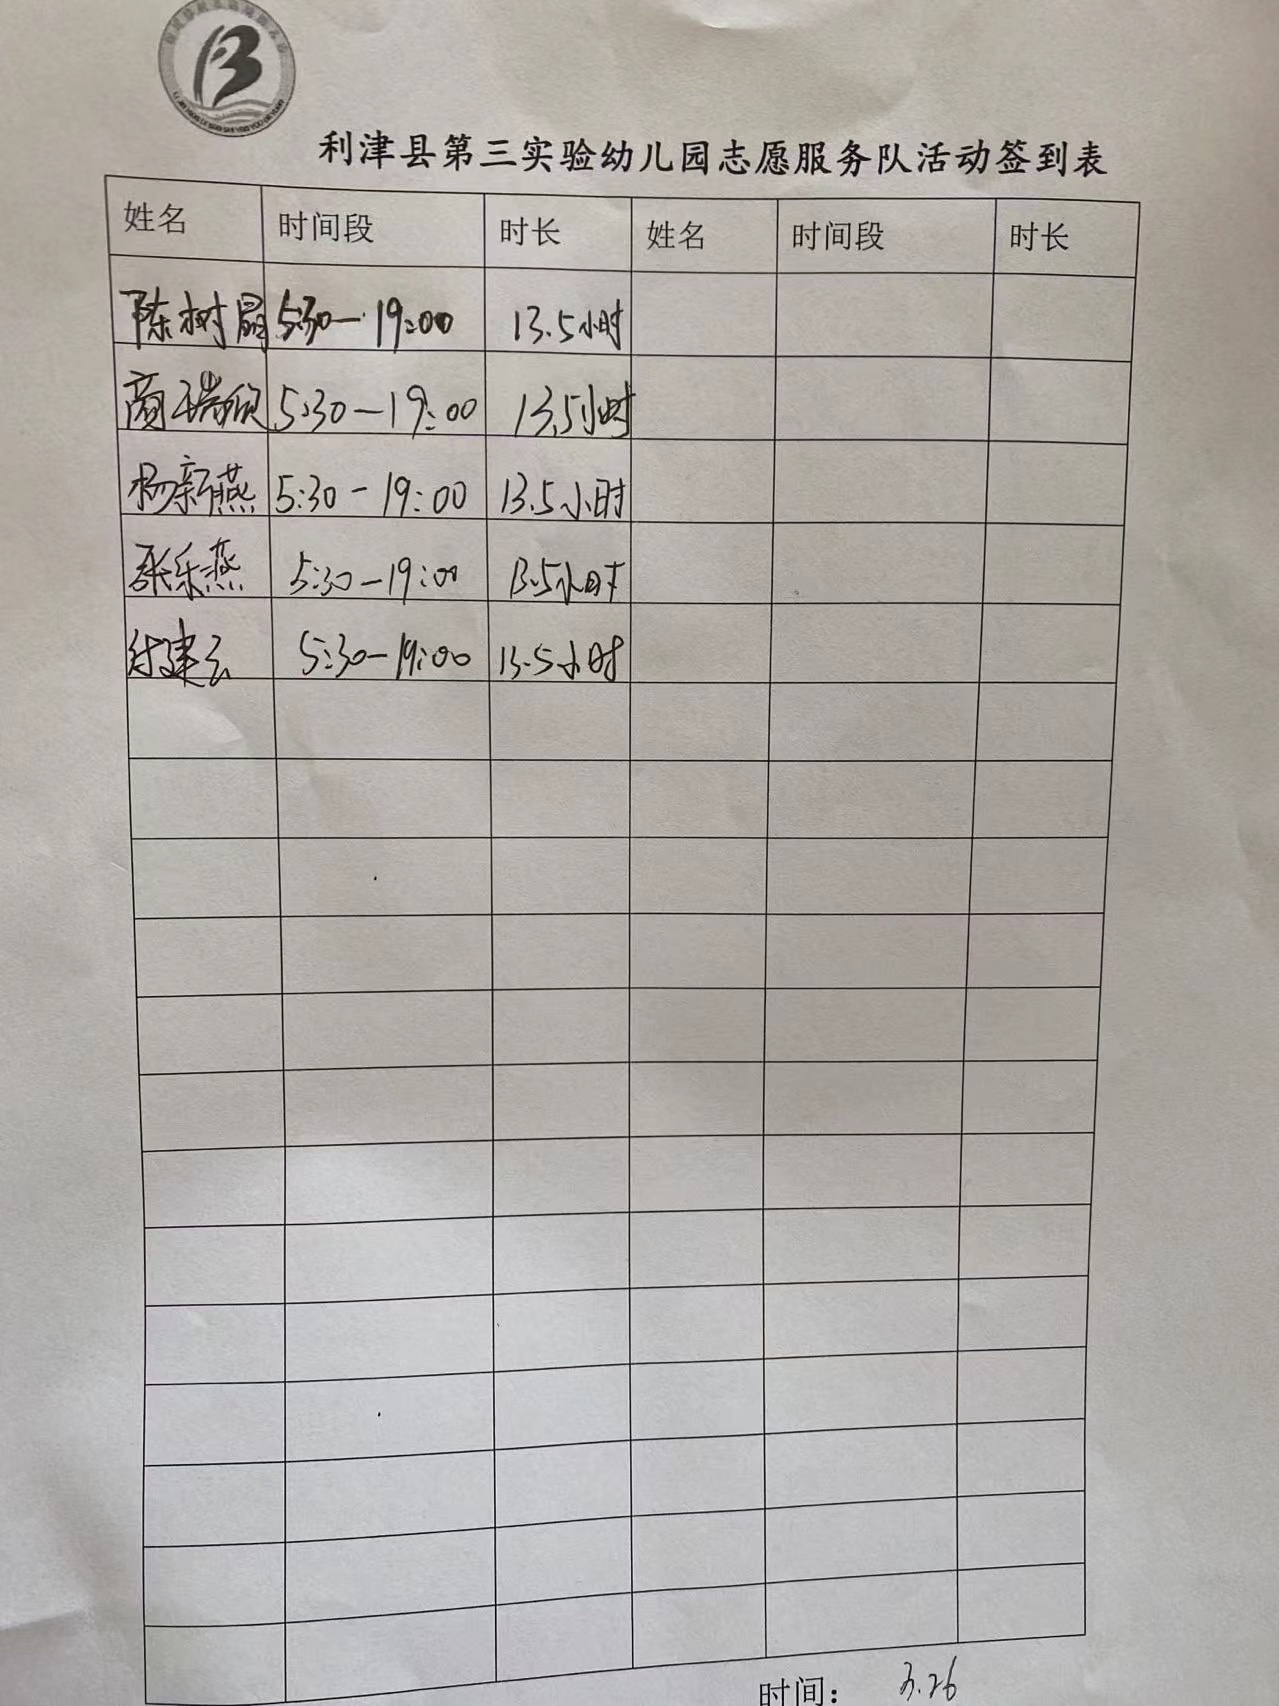 利津县第三实验幼儿园志愿服务队活动签到表
姓名 时间段 时长 姓名 时间段 时长
陈树晶 5:30—19:00 13.5小时
商瑞欣 5:30—19:00 13.5小时
杨新燕 5:30-19:00 13.5小时
张乐燕 5:30-19:00 13.5小时
付建云 5:30-19:00 13.5小时
时间: 3.26